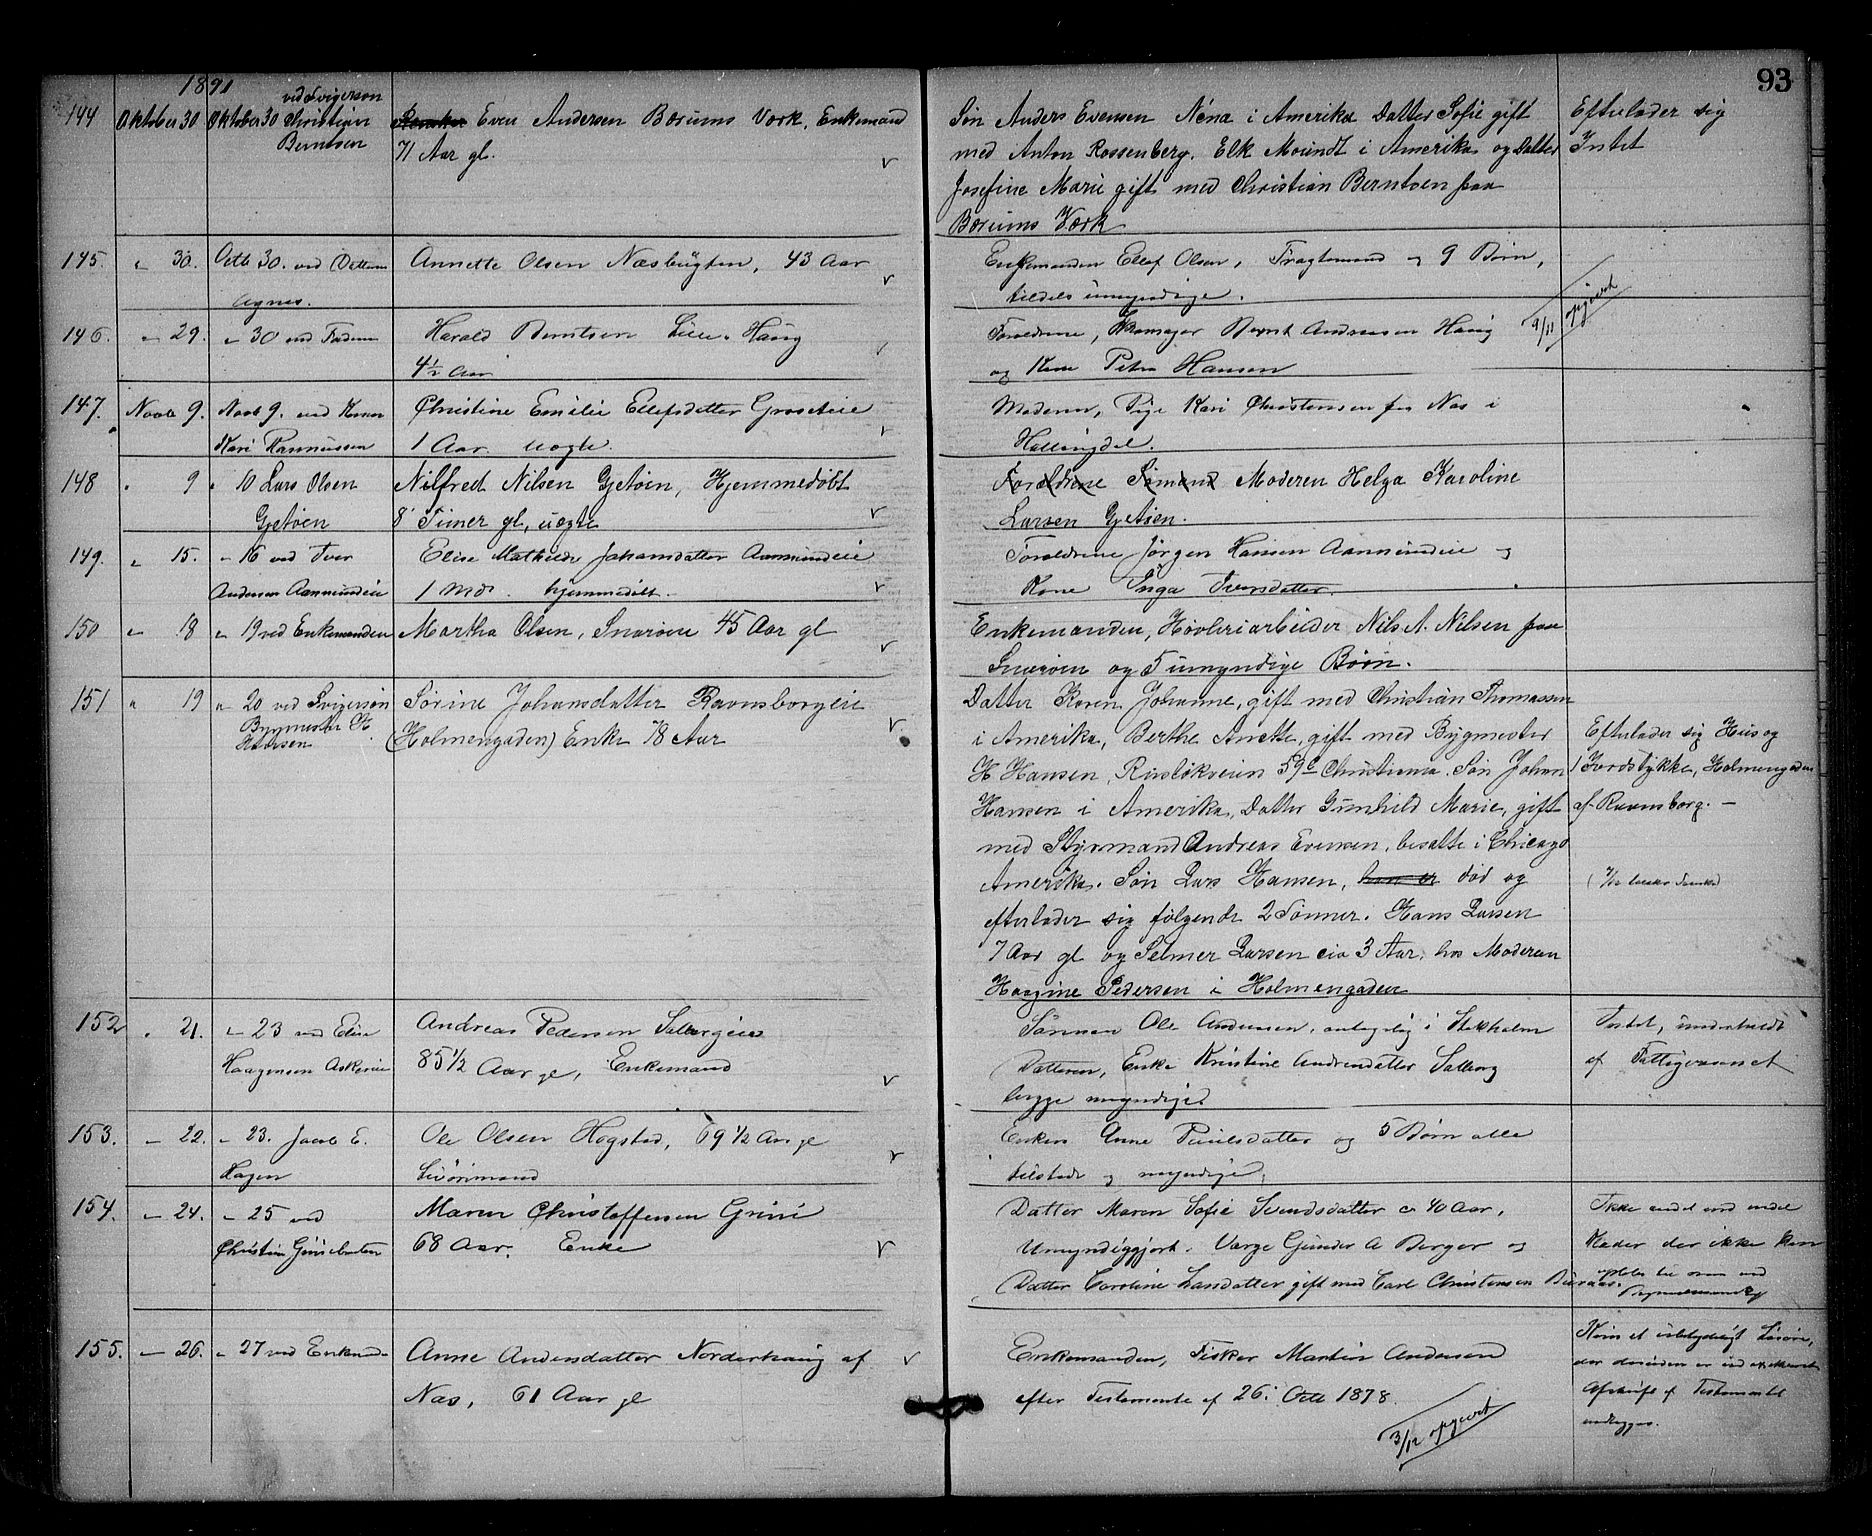 93
1891
144 Oktober 30 Oktober 30 ved Svigerson Christian Berntsen
Even Andersen Bærums Værk, Enkemand
71 Aar gl.
Søn Anders Evensen Néna i Amerika Datter Sofie gift
med Anton Rossenberg, Elk Moundt i Amerika og Datter
Josefine Marie gift med Christian Berntsen paa
Bærums Værk
Efterlader sig
Intet
145 " 30. Octb 30. ved Datteren
Agnes.
Annette Olsen Næsbugten, 43 Aar
Enkemanden Ellef Olsen, Fragtemand og 9 Børn,
tildels umyndige.
9/11 opgjort
146. " 29. " 30 ved Faderen
Harald Berntsen Lille-Haug
4½ Aar
Forældrene, Skomager Bernt Andreasen Haug
og Kone Petra Hansen
147. Novb 9. Novb 9. ved Konen
Kari Rasmussen
Christine Emilie Ellefsdatter Groseteie
1 Aar uægte.
Moderen, Pige Kari Christensen fra Næs i
Hallingdal.
148 " 9 " 10 Lars Olsen
Gjetøen
Nilfred Nilsen Gjetøen, Hjemmedøbt
8 Timer gl, uægte
Forældrene Sømand Moderen Helga Karoline
Larsen Gjetøen.
149. " 15. " 16 ved Iver
Andersen Aamundeie
Elise Mathilde Johansdatter Aamundeie
1 Md. hjemmedøbt.
Forældrene Jørgen Hansen Aamundeie og
Kone Inga Iversdatter.
150 " 18 " 19 ved Enkemanden
Martha Olsen, Snarøen 45 Aar gl
Enkemanden, Høvleriarbeider Nils A. Nilsen paa
Snarøen og 5 umyndige Børn.
151 " 19 " 20 ved Svigersøn
Bygmester H.
Hansen
Sørine Johansdatter Ravnsborgeie
(Holmengaden) Enke 78 Aar
Datter Karen Johanne, gift med Christian Thomassen
i Amerika, Berthe Anette, gift med Bygmester
H Hansen, Rusløkveien 59c Christiania. Søn Johan
Hansen i Amerika, Datter Gunhild Marie, gift
med Styrmand Andreas Evensen, bosatte i Chicago
Amerika. Søn Lars Hansen, han er død og
efterlader sig følgende 2 Sønner. Hans Larsen
7 Aar gl og Selmer Larsen cia 3 Aar, hos Moderen
Haagine Pedersen i Holmengaden
Efterlader sig Hus og
1 Jordstykke, Holmengaden
af Ravnsborg. –
152 " 21. " 23 ved Edise
Haagensen Askerud
Andreas Pedersen Solbergeie
85½ Aar gl, Enkemand
Sønnen Ole Andersen, antagelig i Stokholm
Datteren, Enke Kristine Andersdatter Solberg
begge myndige.
Intet, underholdt
af Fattigvæsenet
153. " 22. " 23. Jacob E.
Hagen
Ole Olsen Hogstad, 69½ Aar gl
Livørimand
Enken Anne Paulsdatter og 5 Børn alle
tilstede og myndige.
154. " 24. " 25 ved
Christian Grinibraaten
Maren Christoffersen Grini
68 Aar. Enke
Datter Maren Sofie Svendsdatter ca 40 Aar,
Umyndiggjort. Værge Gunder A Berger og
Datter Caroline Larsdatter gift med Carl Christensen Buraas.
Ikke andet end endel
Klæder der ikke kan
155. " 26. " 27 ved Enkemd.
Anne Andersdatter Norderhaug af
Næs, 61 Aar gl
Enkemanden, Fisker Martin Andersen
efter Testamente af 26. Octb 1878.
3/12 opgjort
Kun et ubetydeligt Løsøre,
Afskrift af Testamentet
vedlægges.